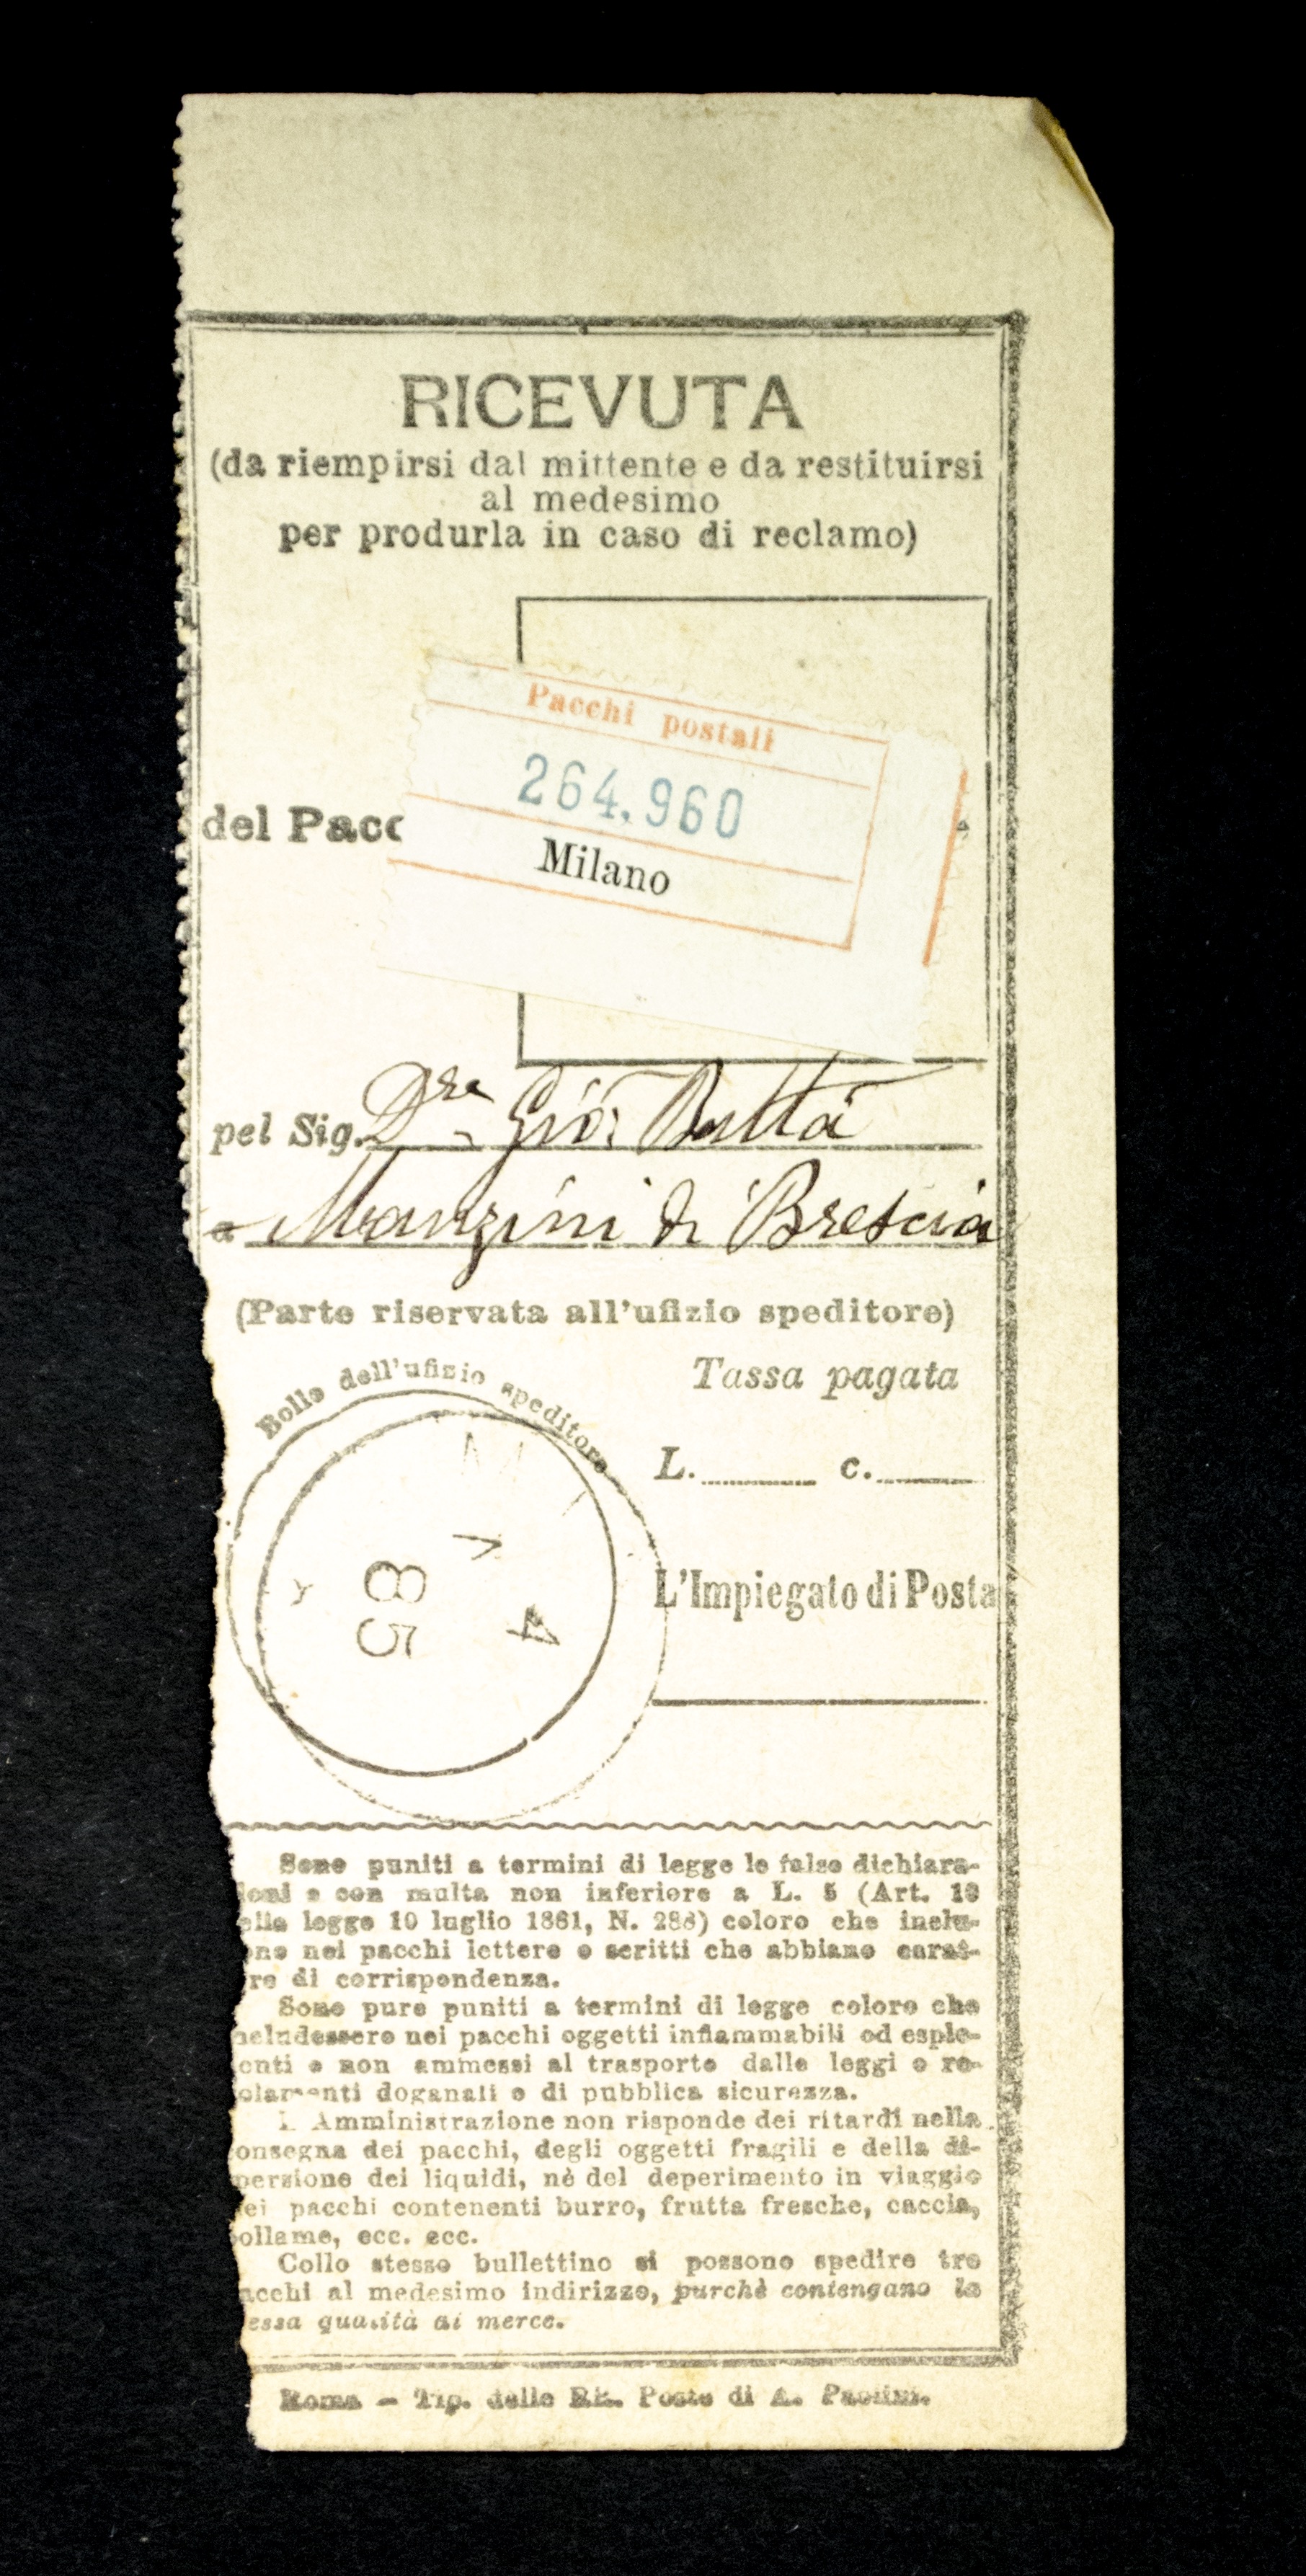 RICEVUTA
(da riempirsi dal mittente e da restituirsi
al medesimo
per produrla in caso di reclamo)
Pacchi postali
264.960
Milano
del Pacc
pel Sig. Dre Gio: Batta
a Manzini di Brescia
(Parte riservata all'ufizio speditore)
Bollo dell'ufizio speditore
Tassa pagata
L. c.
85
4
L'Impiegato di Posta
Sono puniti a termini di legge le false dichiara-
ioni e con multa non inferiore a L. 5 (Art. 10
ella legge 10 luglio 1881, N. 288) coloro che inclu-
ono nei pacchi lettere o scritti che abbiano carat-
re di corrispondenza.
Sono pure puniti a termini di legge coloro che
ncludessero nei pacchi oggetti infiammabili od esplo-
enti e non ammessi al trasporto dalle leggi e re-
olamenti doganali e di pubblica sicurezza.
L'Amministrazione non risponde dei ritardi nella
onsegna dei pacchi, degli oggetti fragili e della di-
persione dei liquidi, nè del deperimento in viaggio
ei pacchi contenenti burro, frutta fresche, caccia,
ollame, ecc. ecc.
Collo stesso bullettino si possono spedire tre
acchi al medesimo indirizzo, purchè contengano la
essa qualità di merce.
Roma - Tip. delle RR. Poste di A. Paolini.